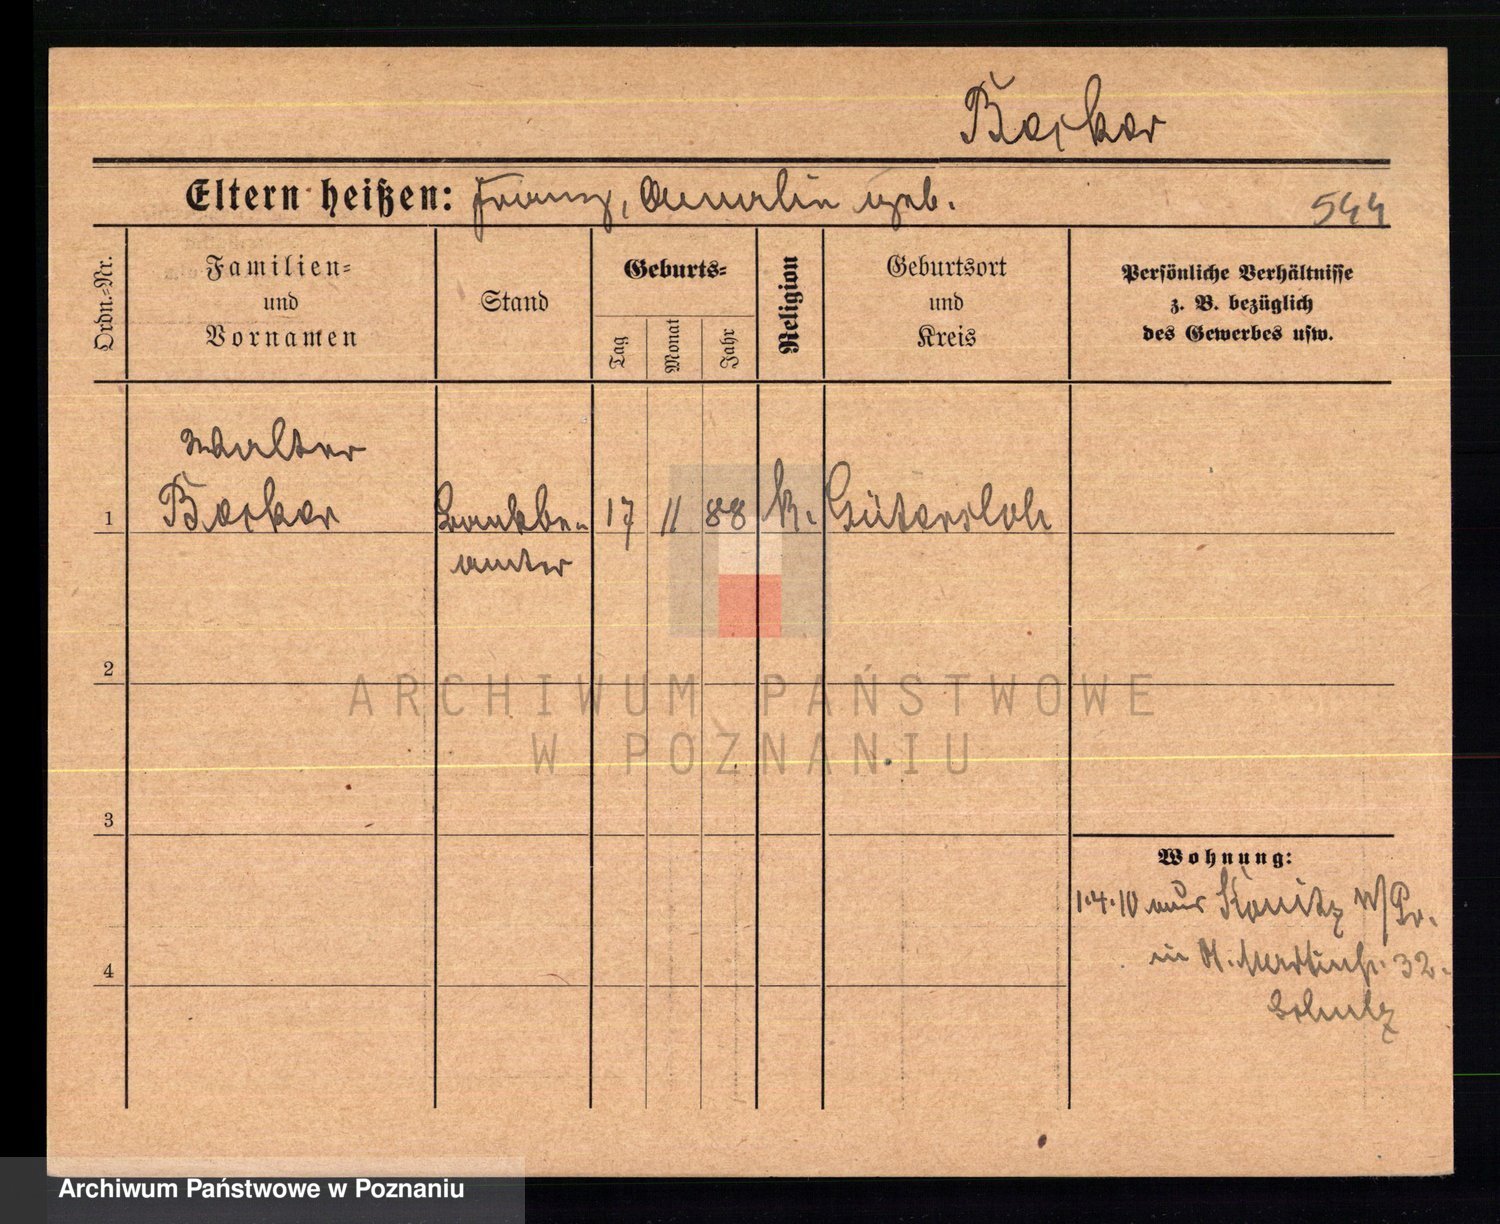 Becker
Eltern heißen: Franz, Amalie geb.
544
Ordn.-Nr.
Familien-
und
Vornamen
Stand
Geburts-
Tag
Monat
Jahr
Religion
Geburtsort
und
Kreis
Persönliche Verhältnisse
z. B. bezüglich
des Gewerbes usw.
Walter
1 Becker Bankbe- 17 11 88 k. Gütersloh
amter
2
3
4
Wohnung:
1.4.10 aus Konitz W/Pr.
in St. Martinstr. 32.
Schulz
ARCHIWUM PAŃSTWOWE
W POZNANIU
Archiwum Państwowe w Poznaniu